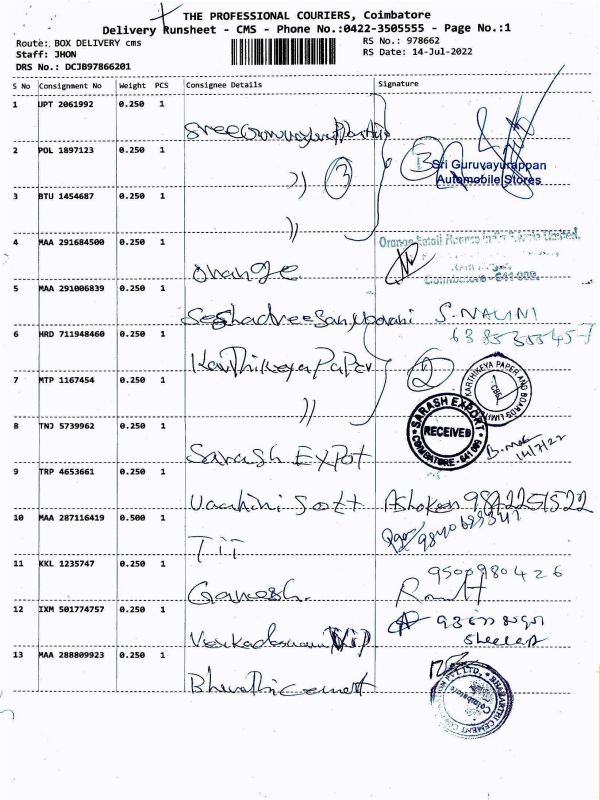 THE PROFESSIONAL COURIERS, Coimbatore
Delivery Runsheet - CMS - Phone No.:0422-3505555 - Page No.:1
Route: BOX DELIVERY cms
Staff: JHON
DRS No.: DCJB97866201
RS No.: 978662
RS Date: 14-Jul-2022
S No Consignment No Weight PCS Consignee Details Signature
1 UPT 2061992 0.250 1
2 POL 1897123 0.250 1 )) 3 3
Sri Guruvayurappan
Automobile Stores
3 BTU 1454687 0.250 1 ))
4 MAA 291684500 0.250 1 Orange
5 MAA 291006839 0.250 1 S. NALINI
6 HRD 711948460 0.250 1 Karthikeya Paper 2
KARTHIKEYA PAPER AND BOARDS LIMITED
CBE
7 MTP 1167454 0.250 1 ))
SARASH EXPORT
RECEIVED
COIMBATORE
8 TNJ 5739962 0.250 1 Sarash Expot 14/7/22
9 TRP 4653661 0.250 1 Vaahini Sott
10 MAA 287116419 0.500 1 TII
11 KKL 1235747 0.250 1 Ganesh. 9500980426
12 IXM 501774757 0.250 1
13 MAA 288809923 0.250 1 Bharathi cement
Coimbatore